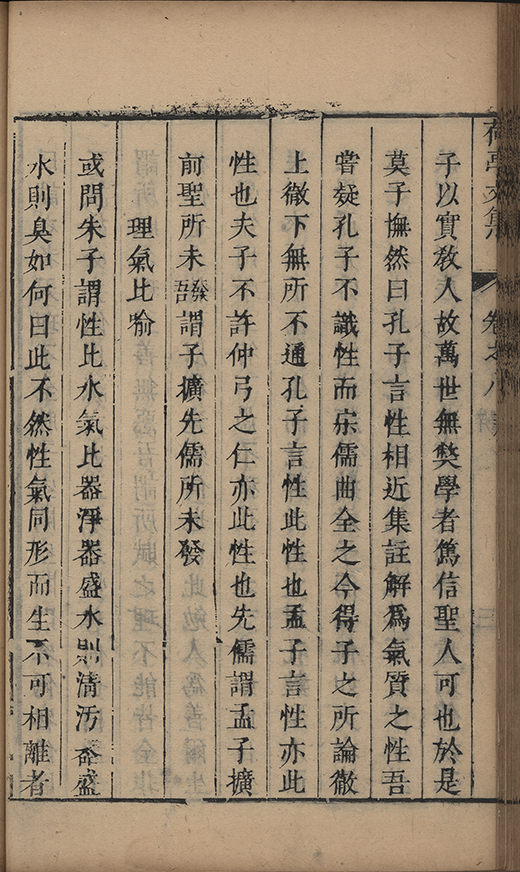 荷亭文集 卷之八
子以實教人故萬世無獘學者篤信聖人可也於是
莫子撫然曰孔子言性相近集註解爲氣質之性吾
嘗疑孔子不識性而宋儒曲全之今得子之所論徹
上徹下無所不通孔子言性此性也孟子言性亦此
性也夫子不許仲弓之仁亦此性也先儒謂孟子擴
前聖所未發吾謂子擴先儒所未發
理氣比喻
或問朱子謂性比水氣比器淨器盛水則清汚器盛
水則臭如何曰此不然性氣同形而生不可相離者